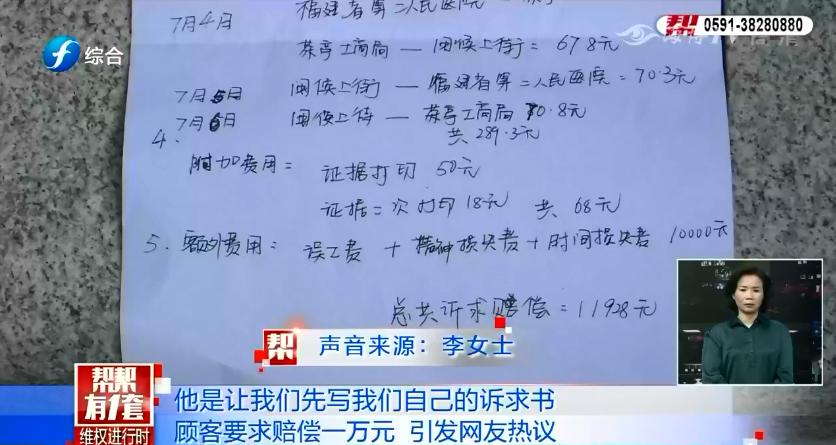 福建省第二人民医院
7月4日
茶亭工商局 — 闽侯上街 = 67.8元
7月5日 闽侯上街 — 福建省第二人民医院 = 70.3元
7月6日 闽侯上街 — 茶亭工商局 70.8元
共 289.3元
4.
附加费用: 证据打印 50元
证据二次打印 18元 共 68元
5. 额外费用: 误工费 + 精神损失费 + 时间损失费 10000元
总共诉求赔偿 = 11928元
综合
帮
0591-38280880
帮 声音来源：李女士
帮帮有1套
维权进行时
他是让我们先写我们自己的诉求书
顾客要求赔偿一万元 引发网友热议